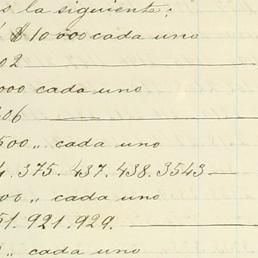 s la siguiente;
$10000 cada uno
02
000 cada uno
06
500 „ cada uno
4. 375. 437. 438. 3543
00 „ cada uno
51. 921. 929.
„ cada uno